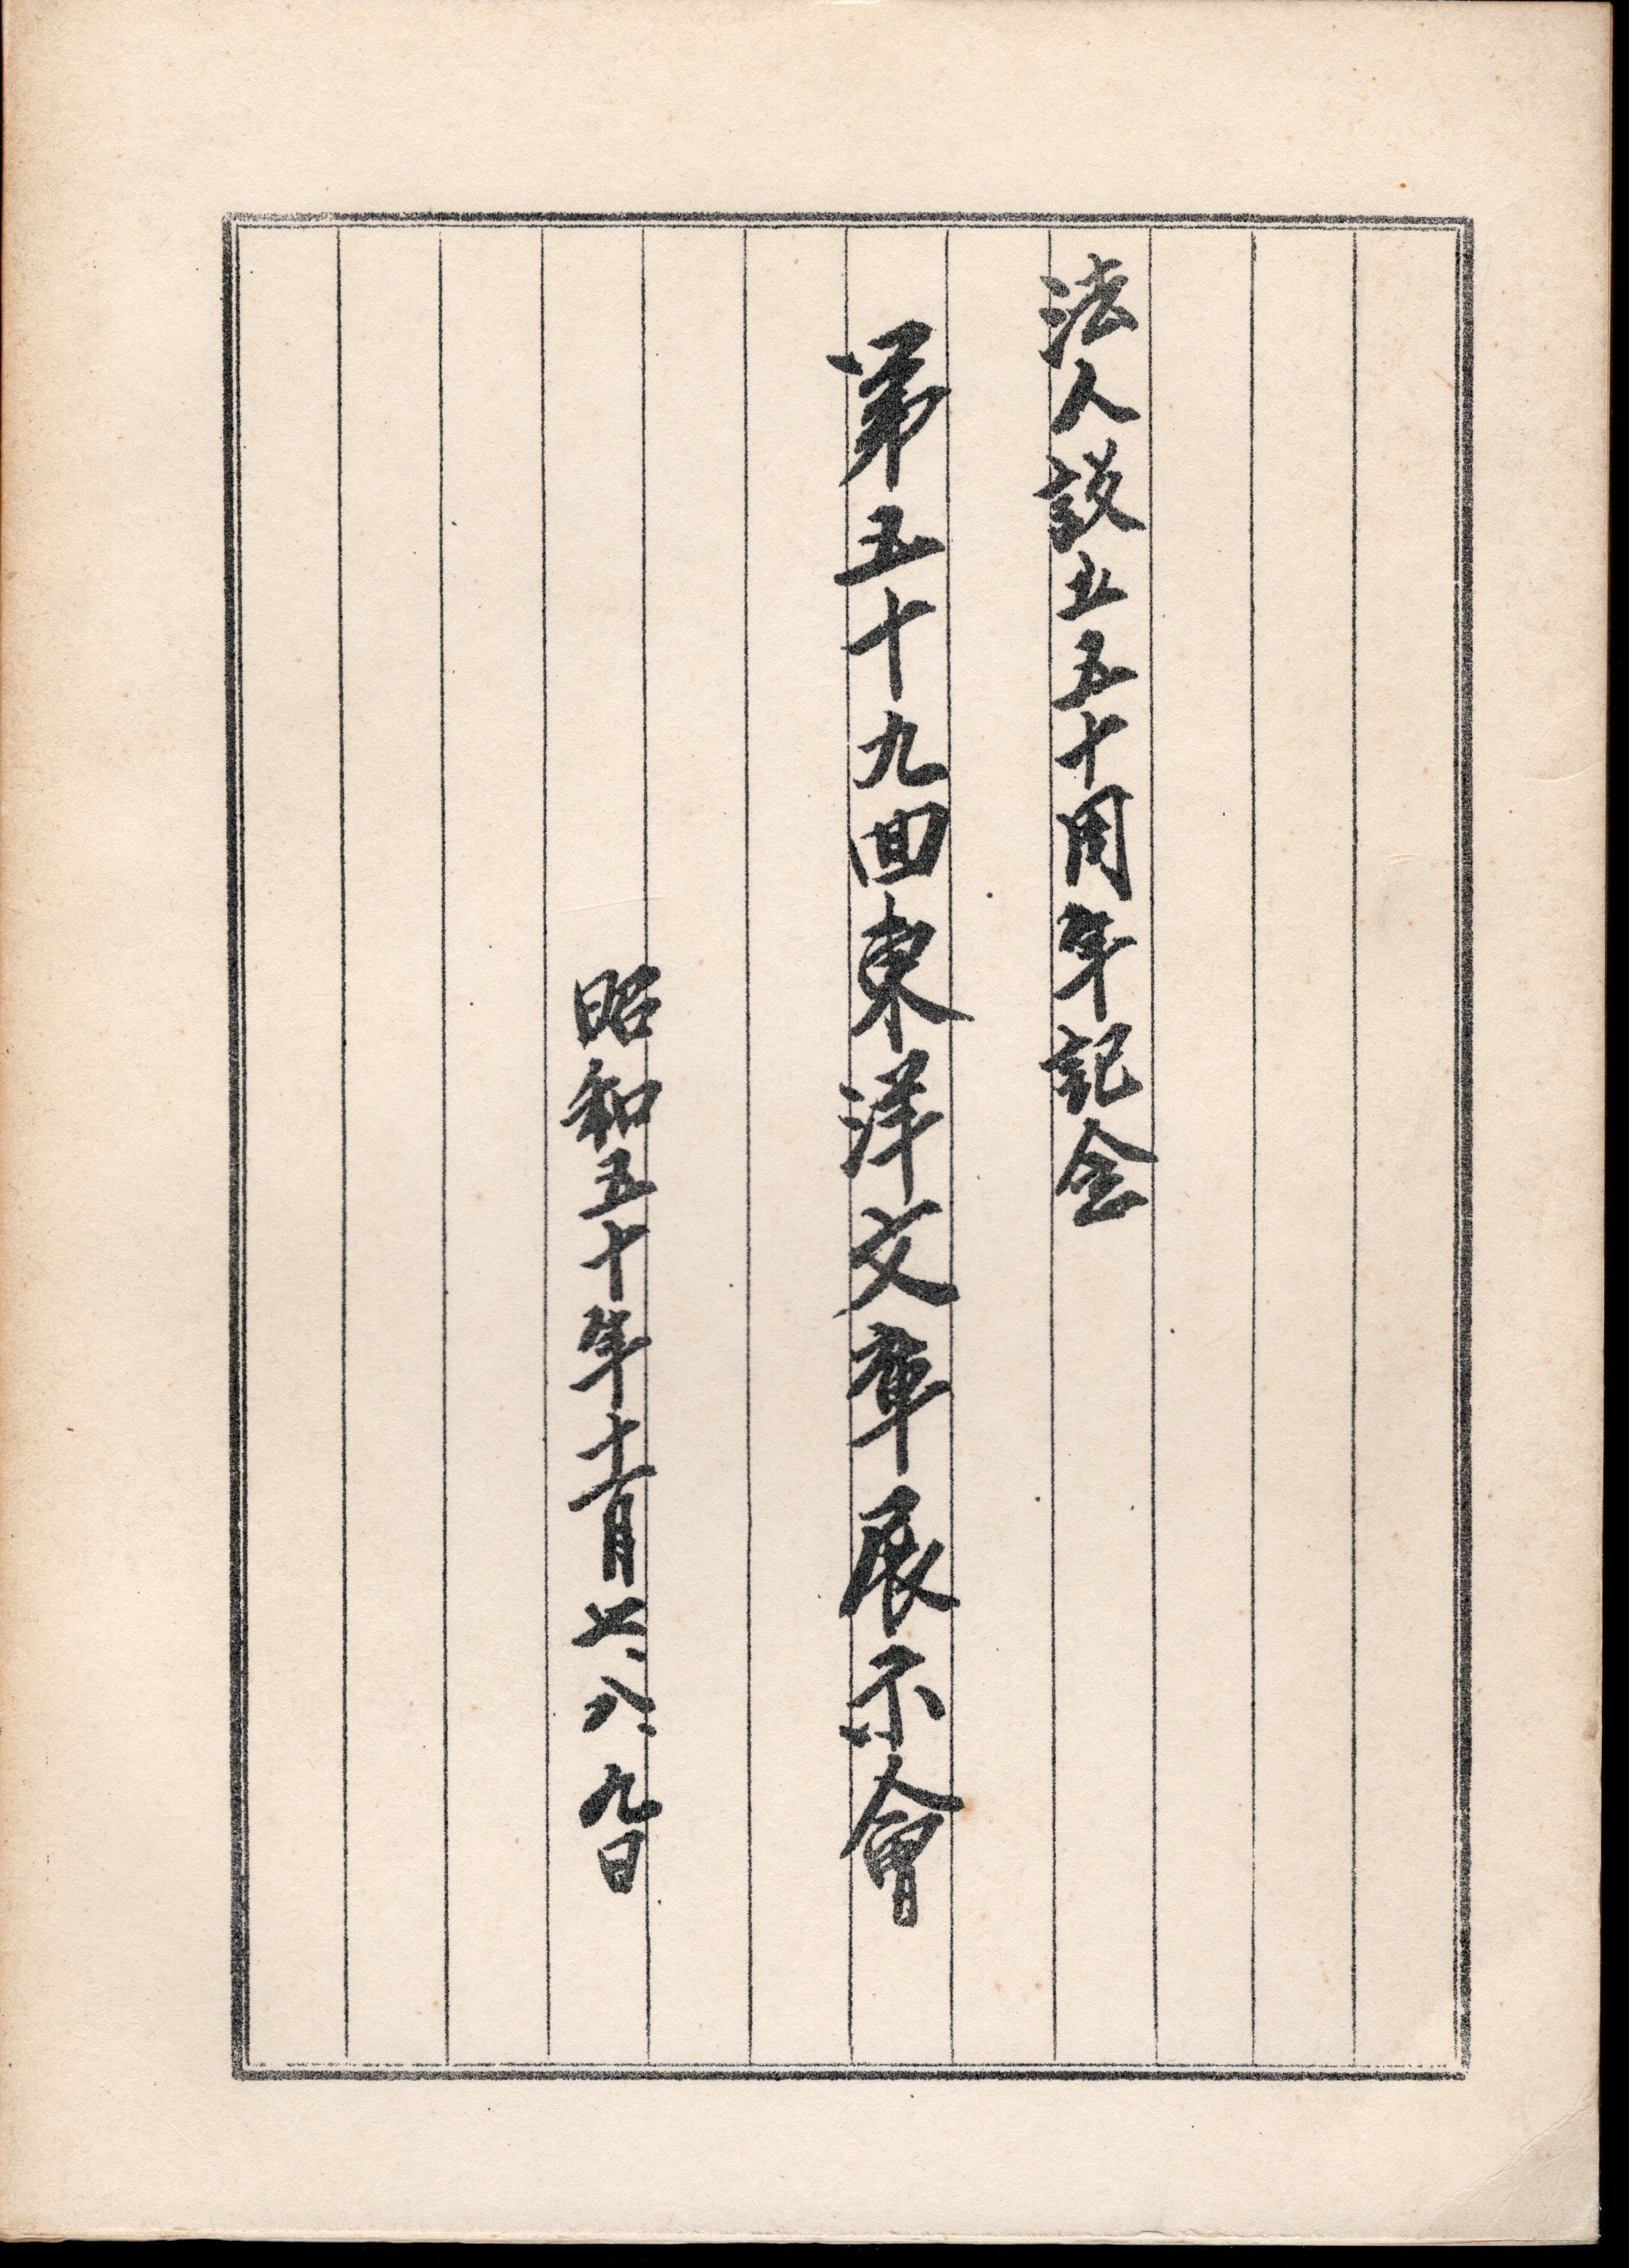 法人設立五十周年記念
第五十九回東洋文庫展示會
昭和五十年十一月七、八、九日